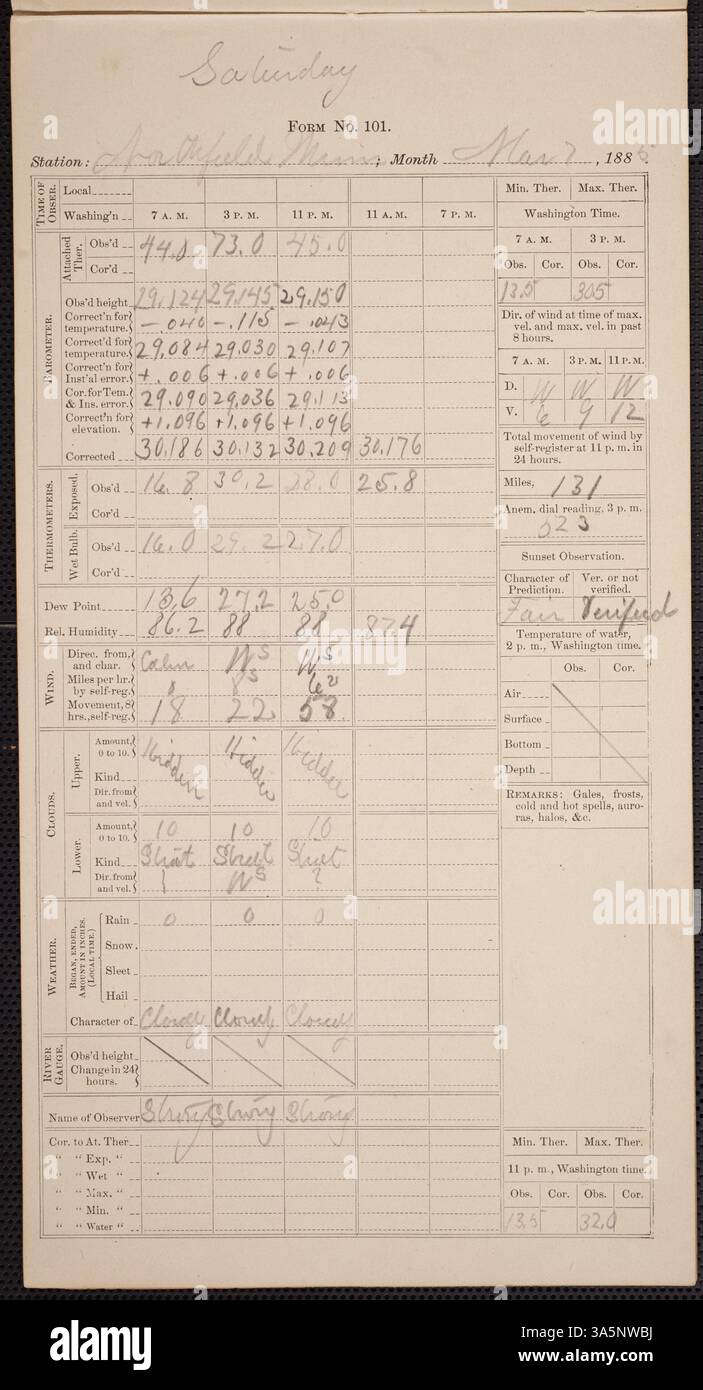 Saturday
FORM No. 101.
Station: Northfield Minn; Month Mar 7, 1885
TIME OF OBSER.
Local
Washing'n 7 A. M. 3 P. M. 11 P. M. 11 A. M. 7 P. M.
BAROMETER.
Attached Ther.
Obs'd 44.0 73.0 45.0
Cor'd
Obs'd height 29.124 29.145 29.150
Correct'n for temperature. -.040 -.115 -.043
Correct'd for temperature. 29.084 29.030 29.107
Correct'n for Inst'al error. +.006 +.006 +.006
Cor. for Tem. & Ins. error. 29.090 29.036 29.113
Correct'n for elevation. +1.096 +1.096 +1.096
Corrected 30.186 30.132 30.209 30.176
THERMOMETERS.
Exposed.
Obs'd 16.8 30.2 28.0 25.8
Cor'd
Wet Bulb.
Obs'd 16.0 29.2 27.0
Cor'd
Dew Point 13.6 27.2 25.0
Rel. Humidity 86.2 88 88 87.4
WIND.
Direc. from, and char. Calm WS WS
Miles per hr. by self-reg. 0
Movement, 8 hrs., self-reg. 18 22 58
CLOUDS.
Upper.
Amount, 0 to 10. Hidden Hidden Hidden
Kind
Dir. from and vel.
Lower.
Amount, 0 to 10. 10 10 10
Kind Strat Street Street
Dir. from and vel. WS ?
WEATHER.
BEGAN, ENDED, AMOUNT IN INCHES. (LOCAL TIME.)
Rain 0 0 0
Snow.
Sleet
Hail
Character of Cloudy Cloudy Cloudy
RIVER GAUGE.
Obs'd height
Change in 24 hours.
Name of Observer Strong Strong Strong
Cor. to At. Ther
" " Exp. "
" " Wet "
" " Max. "
" " Min. "
" " Water "
Min. Ther. Max. Ther.
Washington Time.
7 A. M. 3 P. M.
Obs. Cor. Obs. Cor.
13.5 30.5
Dir. of wind at time of max. vel. and max. vel. in past 8 hours.
7 A. M. 3 P. M. 11 P. M.
D. W W W
V. 6 9 12
Total movement of wind by self-register at 11 p. m. in 24 hours.
Miles, 131
Anem. dial reading, 3 p. m.
523
Sunset Observation.
Character of Prediction. Ver. or not verified.
Fair Verified
Temperature of water, 2 p. m., Washington time.
Obs. Cor.
Air
Surface
Bottom
Depth
REMARKS: Gales, frosts, cold and hot spells, auroras, halos, &c.
Min. Ther. Max. Ther.
11 p. m., Washington time.
Obs. Cor. Obs. Cor.
13.5 32.0
alamy
Image ID: 3A5NWBJ
www.alamy.com